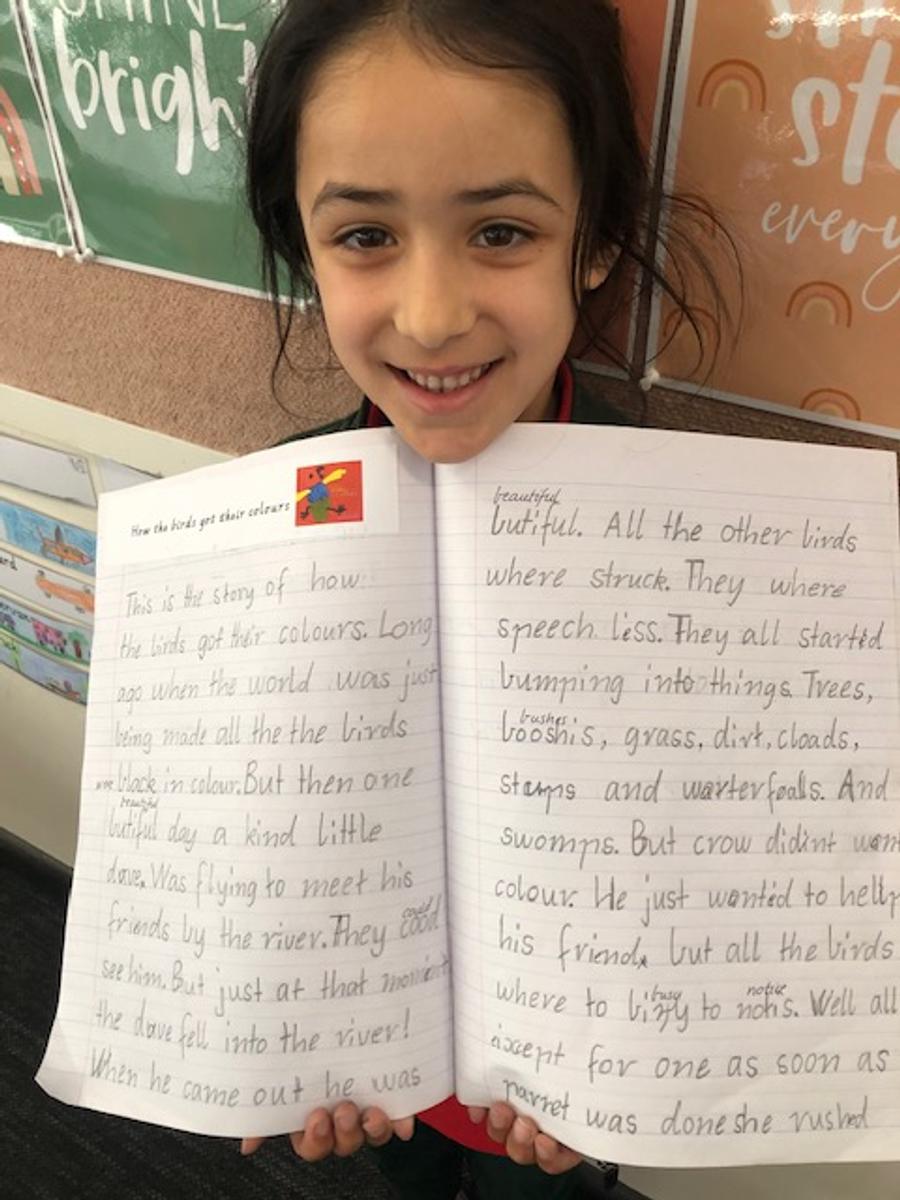 SHINE
bright
sto
every
How the birds got their colours
This is the story of how
the birds got their colours. Long
ago when the world was just
being made all the the birds
were black in colour. But then one
beautiful
butiful day a kind little
dove. Was flying to meet his
could
friends by the river. They cood
see him. But just at that momient
the dove fell into the river!
When he came out he was
beautiful
butiful. All the other birds
where struck. They where
speech less. They all started
bumping into things. Trees,
bushes
booshis, grass, dirt, cloads,
stamps and warterfalls. And
swomps. But crow didint want
colour. He just wantid to help
his friend, but all the birds
busy notice
where to bizzy to notis. Well all
except for one as soon as
parret was done she rushed